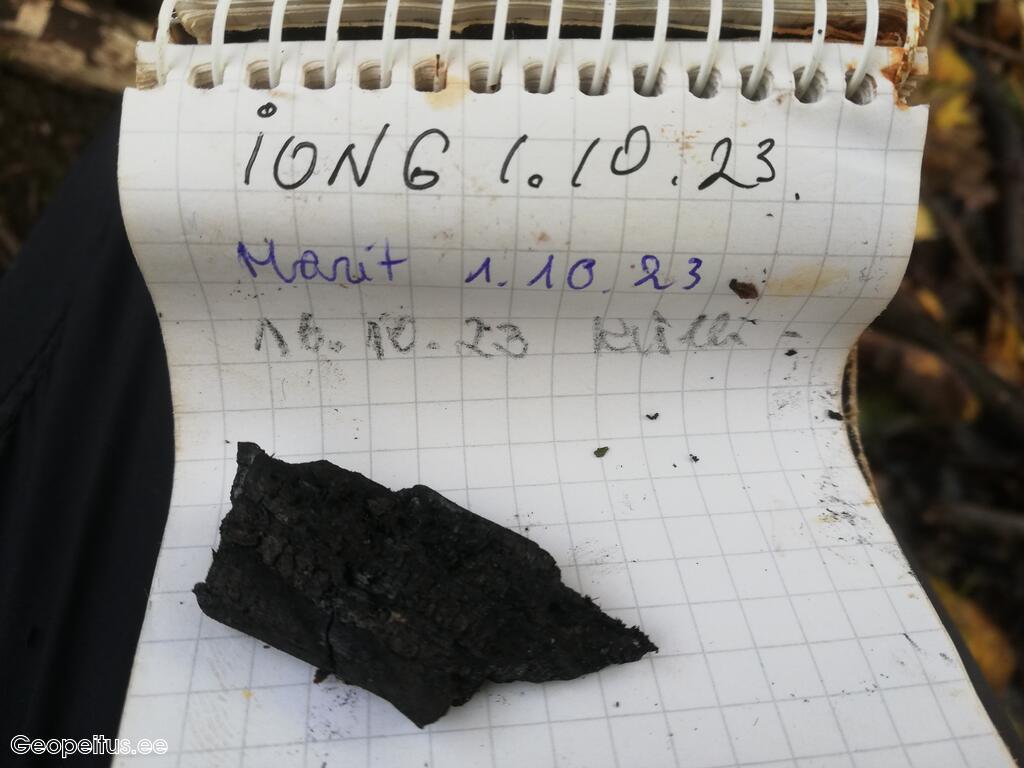 iONG 1.10.23.
Marit 1.10.23
16.10.23 Külli
Geopeitus.ee